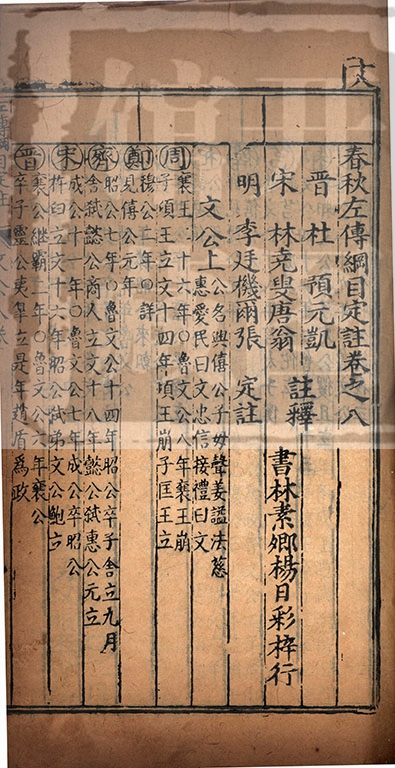 春秋左傳綱目定註卷之八
晉 杜 預元凱 註釋
宋 林堯叟唐翁
明 李廷機爾張 定註
書林素卿楊日彩梓行
文公上
公名興僖公子母聲姜謚法慈
惠愛民曰文忠信接禮曰文
周
襄王二十六年〇魯文公八年襄王崩
子頃王立文十四年頃王崩子匡王立
鄭
穆公二年〇詳
見僖公元年
齊
昭公七年〇魯文公十四年昭公卒子舍立九月
舍弒懿公商人立文十八年懿公弒惠公元立
宋
成公十一年〇魯文公七年成公卒昭公
杵臼立文十六年昭公弒弟文公鮑立
晉
襄公繼霸二年〇魯文公六年襄公
卒子靈公夷皐立是年趙盾爲政